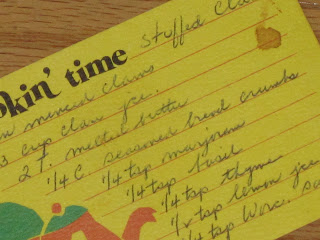 stuffed Cla
okin' time
n minced clams
3 cup clam jce.
2 T. melted butter
1/4 C seasoned bread crumbs
1/4 tsp marjoram
1/4 tsp basil
1/4 tsp thyme
1/2 tsp lemon jce
1/4 tsp Worc. sa